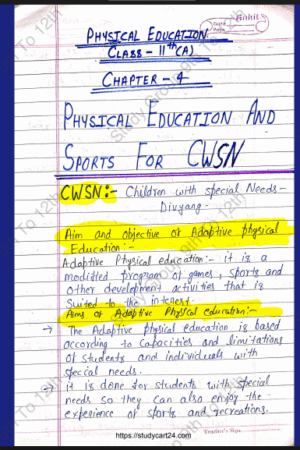 Ankit
PHYSICAL EDUCATION
CLASS - 11th (A)
CHAPTER - 4
PHYSICAL EDUCATION AND
SPORTS FOR CWSN
CWSN :- Children with special Needs -
Divyang.
Aim and objective of Adaptive physical
Education :-
Adaptive Physical education :- it is a
modified program of games, sports and
other development activities that is
suited to the interest.
Aims of Adaptive Physical education :-
→ The Adaptive physical education is based
according to capacities and limitations
of students and individuals with
special needs.
→ it is done for students with special
needs so they can also enjoy the
experience of sports and recreations.
https://studycart24.com
Teacher's Sign.